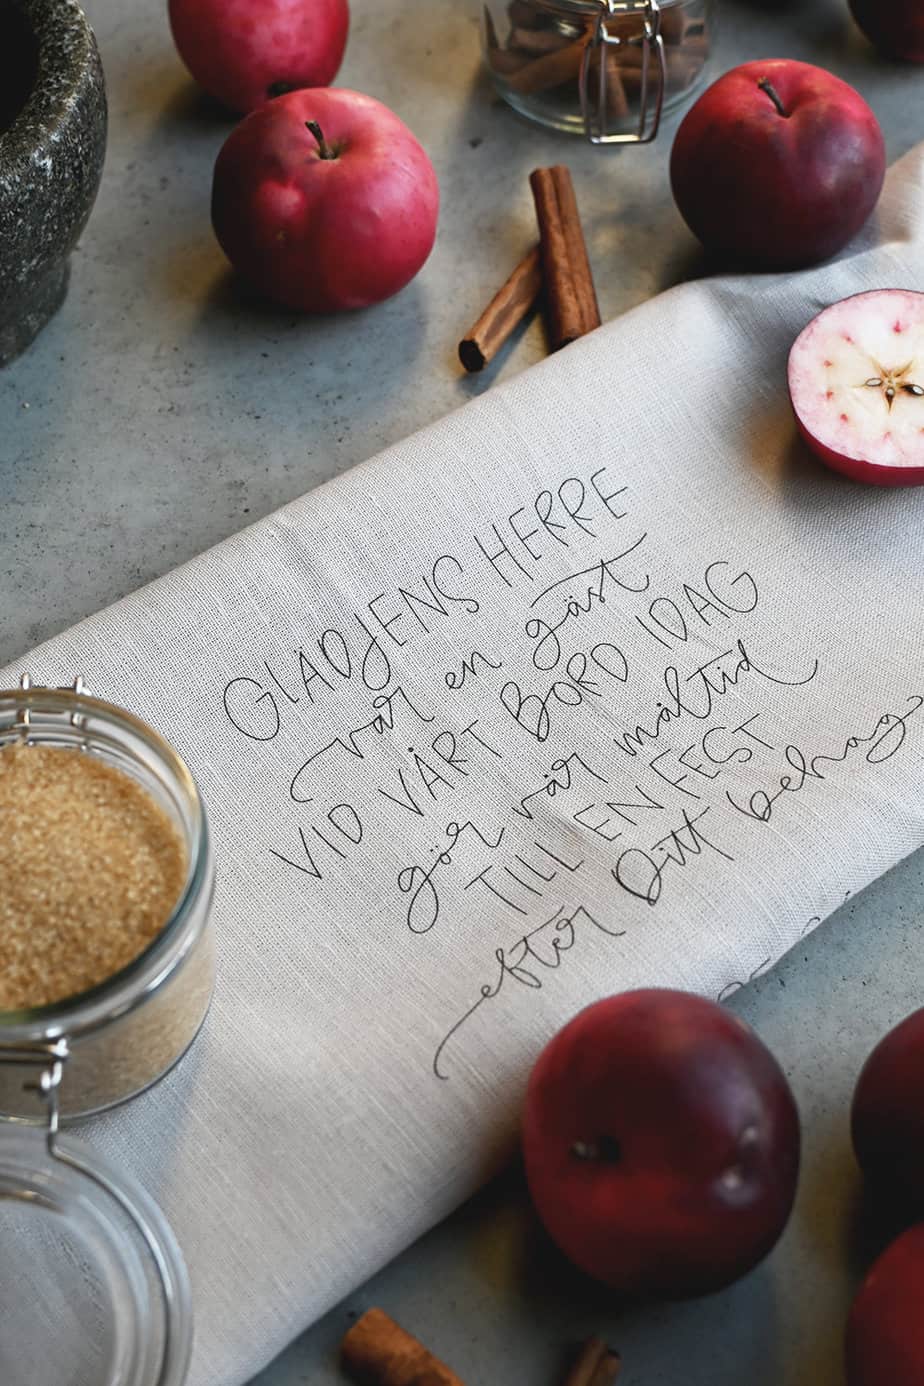 GLÄDJENS HERRE
var en gäst
VID VÅRT BORD IDAG
gör vår måltid
TILL EN FEST
efter Ditt behag.